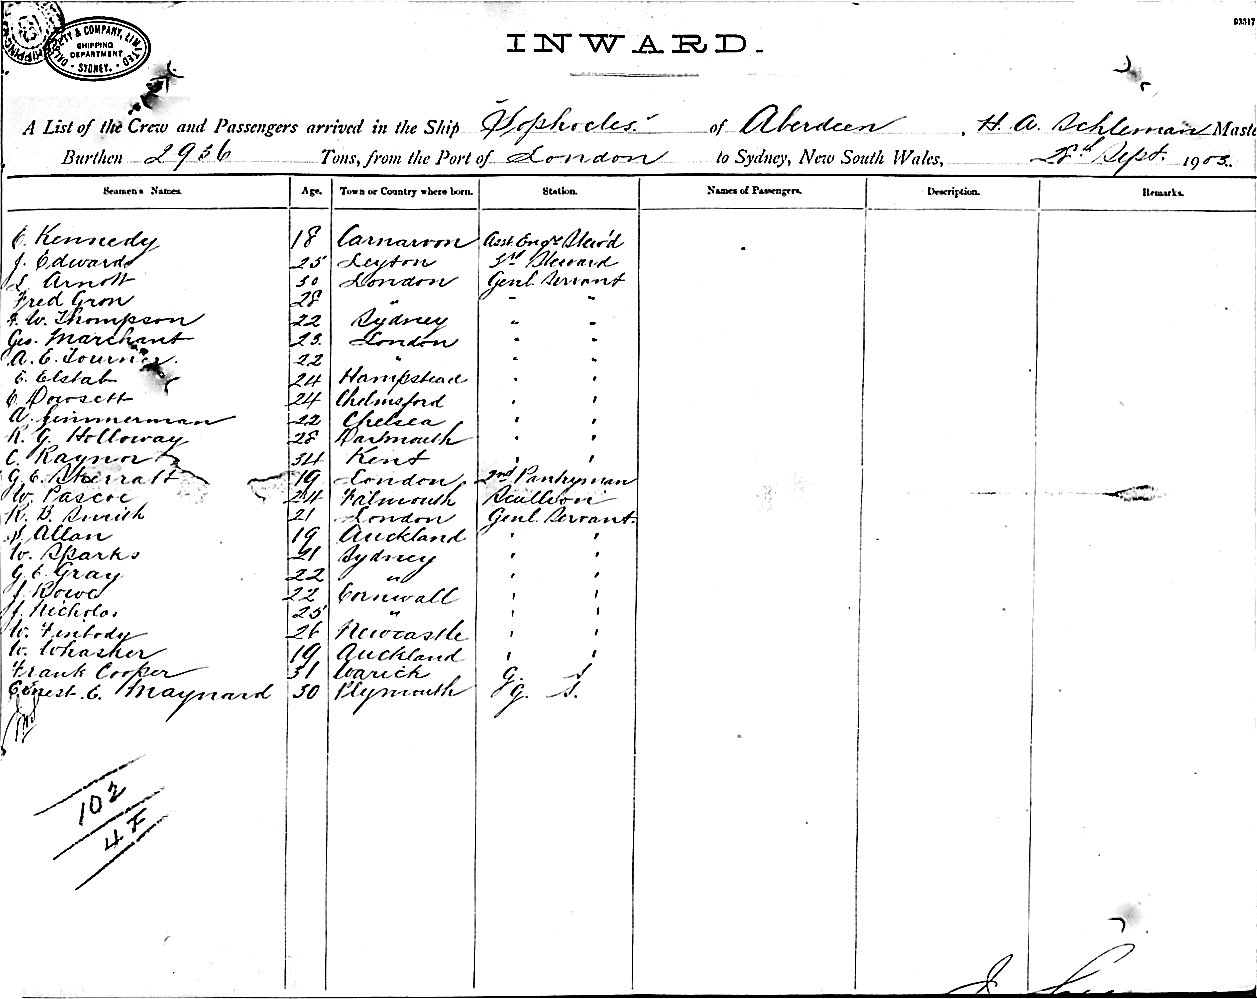 DALGETY & COMPANY, LIMITED
SHIPPING
DEPARTMENT
SYDNEY.
INWARD.
A List of the Crew and Passengers arrived in the Ship "Sophocles" of Aberdeen, H. A. Schleman Maste
Burthen 2956 Tons, from the Port of London to Sydney, New South Wales, 28th Sept. 1903.
Seamen's Names. Age. Town or Country where born. Station. Names of Passengers. Description. Remarks.
C. Kennedy 18 Carnarvon Asst. Engrs Stew'd
J. Edwards 25 Leyton 3rd Steward
Arnott 30 London Genl. Servant
Fred Gron 28 " " "
F. W. Thompson 22 Sydney " "
Geo. Marchant 23 London " "
A. E. 22 " " "
E. Elstab 24 Hampstead " "
C. Dowsett 24 Chelmsford " "
A. Zimmerman 22 Chelsea " "
R. G. Holloway 28 Dartmouth " "
C. Raynor 34 Kent " "
G. E. Sherratt 19 London 2nd Pantryman
W. Pascoe 24 Falmouth Scullion
R. B. Smith 21 London Genl. Servant.
Allan 19 Auckland " "
W. Sparks 21 Sydney " "
G. E. Gray 22 " " "
J. Rowe 22 Cornwall " "
H. Nicholas 25 " " "
W. 26 Newcastle " "
W. Whasher 19 Auckland " "
Frank Cooper 31 Warick G. S.
Ernest E. Maynard 30 Plymouth G. S.
102